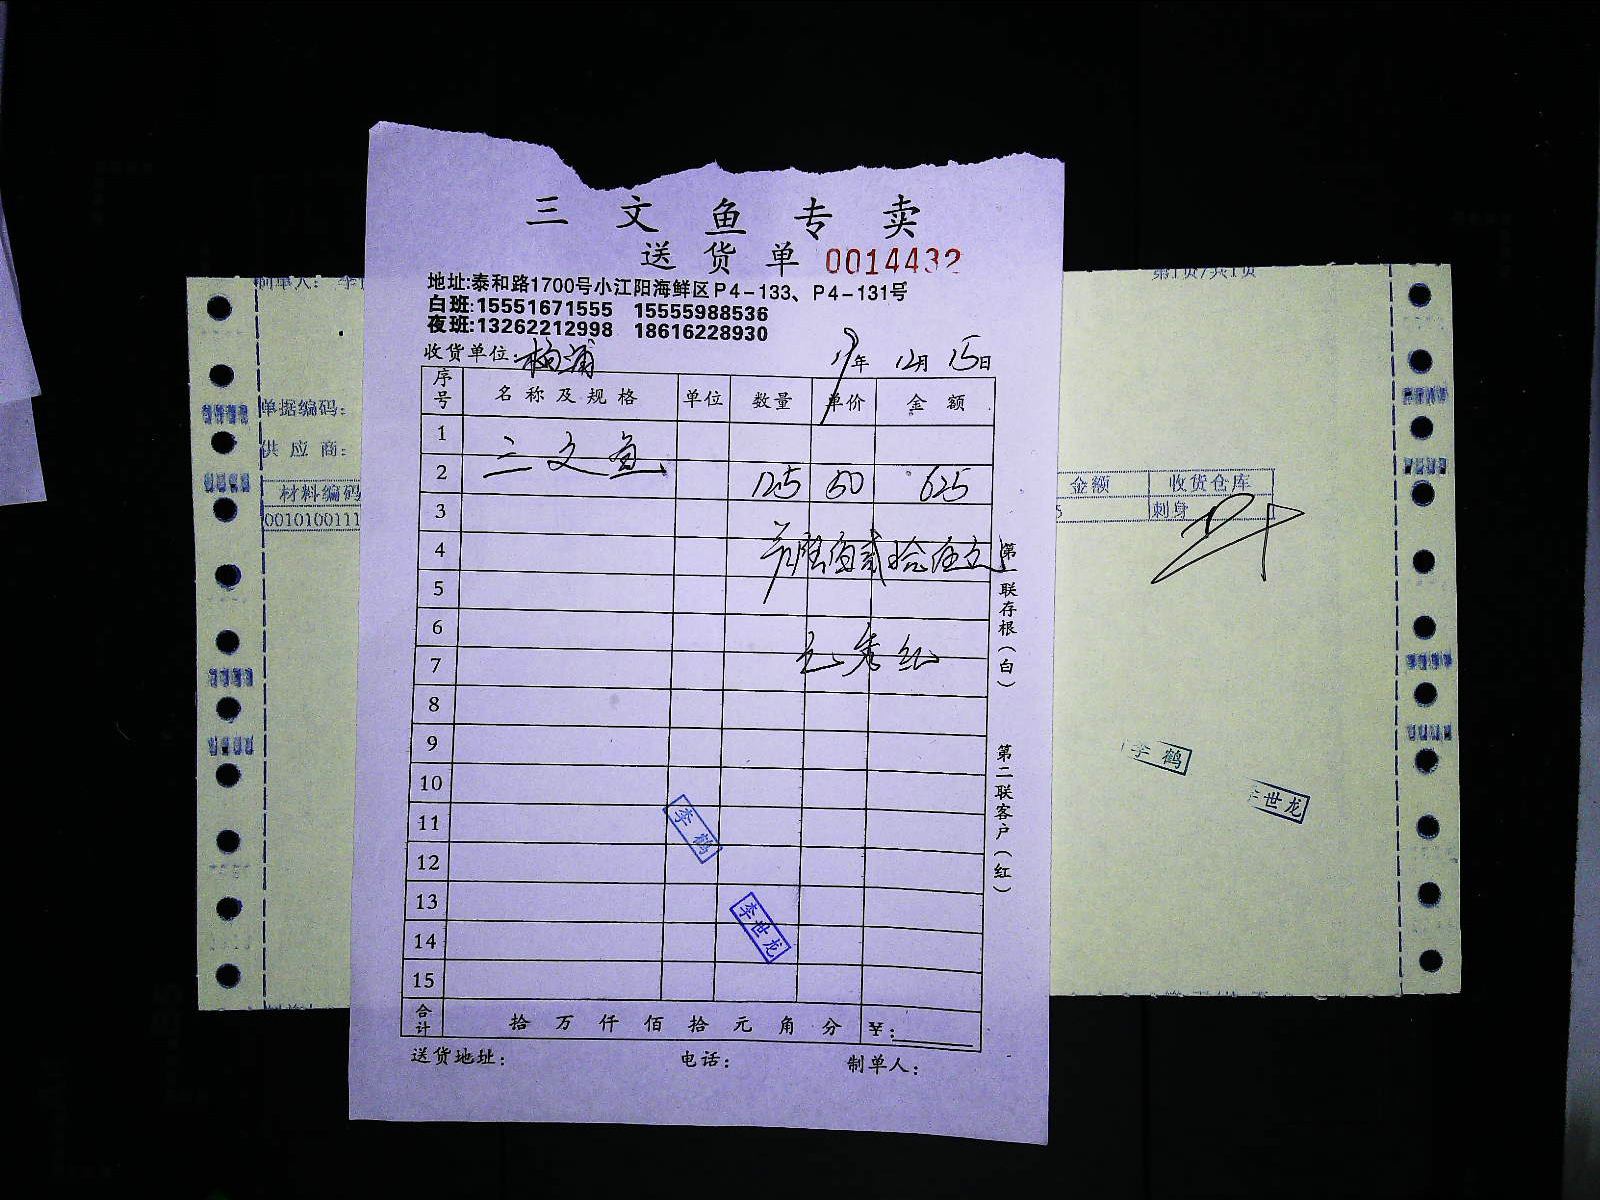 三文鱼专卖
送货单 0014432
地址:泰和路1700号小江阳海鲜区P4-133、P4-131号
白班:15551671555 15555988536
夜班:13262212998 18616228930
收货单位:杨浦 19年 12月 15日
序号 名称及规格 单位 数量 单价 金额
1
2 三文鱼 125 50 625
3
4 陆佰贰拾伍元
5
6
7
8
9
10
11
12
13
14
15
李鹤
李世龙
合计 拾 万 仟 佰 拾 元 角 分 ¥:
送货地址: 电话: 制单人:
第一联存根(白)
第二联客户(红)
制单人: 李
第1页/共1页
单据编码:
供应商:
材料编码
金额 收货仓库
0010100111
刺身
李鹤
世龙